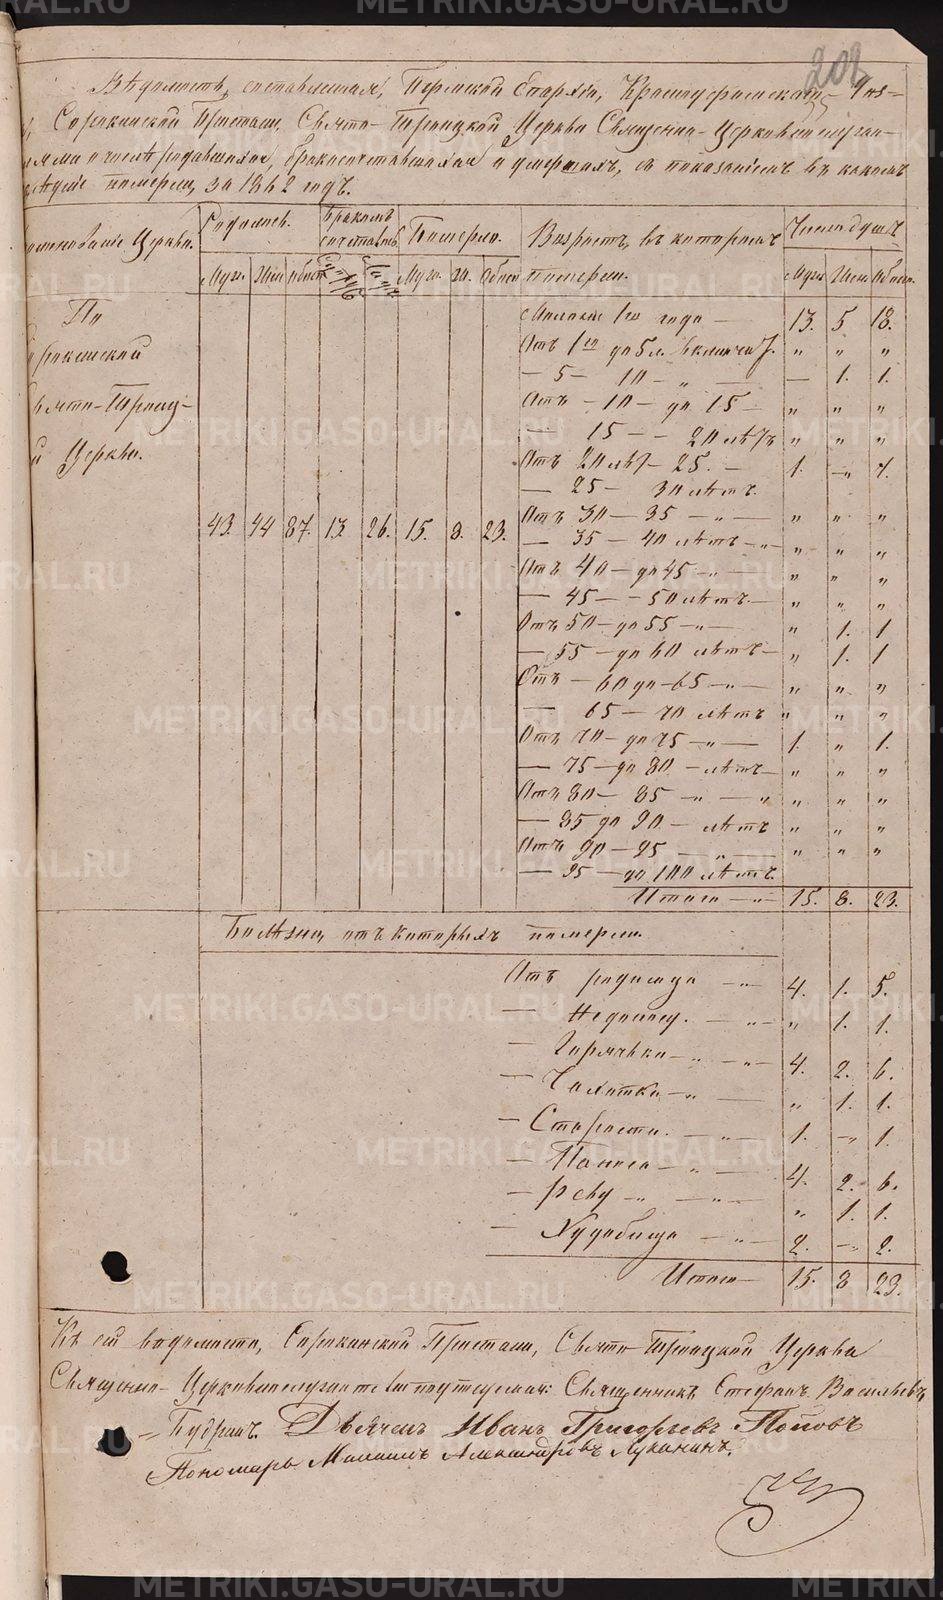 202
Вѣдомость, составленная, Пермской Епархіи, Красноуфимскаго Уѣз-
Сорокинской Пристани, Свято-Троицкой Церкви Священно-Церковнослужи-
о числѣ родившихся, бракосочетавшихся и умершихъ, съ показаніемъ въ какомъ
померли, за 1862 годъ.
Церкви. Родилось. Бракомъ сочетались. Померло. Возрастъ, въ которомъ померли. Число душъ
Муж. Жен. Обоего Муж. Ж. Обоего Муж. Жен. Обоего
По
рокинской
вято-Троиц-
й Церкви.
43. 44 87. 13. 26. 15. 8. 23.
Менѣе 1го года — 13. 5 18.
Отъ 1го до 5 л. включ. " " "
— 5 — 10 — " — — 1. 1.
Отъ — 10 — до 15 — " " "
15 — — 20 лѣтъ " " "
Отъ 20 лѣт — 25. — 1. —" 1.
— 25 — 30 лѣтъ.
Отъ 30 — 35 — " — " " "
— 35 — 40 лѣтъ — " — " " "
Отъ 40 — до 45 — " — " " "
— 45 — — 50 лѣтъ. — " " "
Отъ 50 — до 55 — " — " 1. 1
— 55 — до 60 лѣтъ — " 1. 1
Отъ — 60 до 65 — " — " " "
— 65 — 70 лѣтъ " " "
Отъ 70 — до 75 — " — 1. " 1.
— 75 — до 80. — лѣтъ — " " "
Отъ 80 — 85 — " — " " " "
— 85 до 90. — лѣтъ " " "
Отъ 90 — 95 — " — " " "
— 95 — до 100 лѣтъ.
Итого — " — 15. 8. 23.
Болѣзни, отъ которыхъ померли.
Отъ родимца — " — 4. 1. 5.
— — " — " 1. 1.
— Горячки — " — " — 4. 2. 6.
— Чахотки — " — " 1. 1.
— Старости. — " — 1. —" 1.
— Поноса — " — 4. 2. 6.
— " — " — " 1. 1.
— Худобища — " — 2. —" 2.
Итого — 15. 8 23.
Къ сей вѣдомости, Сорокинской Пристани, Свято-Троицкой Церкви
Священно-Церковнослужители подписуемся: Священникъ Стефанъ Васильевъ
— Будринъ. Дьячекъ Иванъ Григорьевъ Поповъ
Пономарь Александровъ Луканинъ.
METRIKI.GASO-URAL.RU